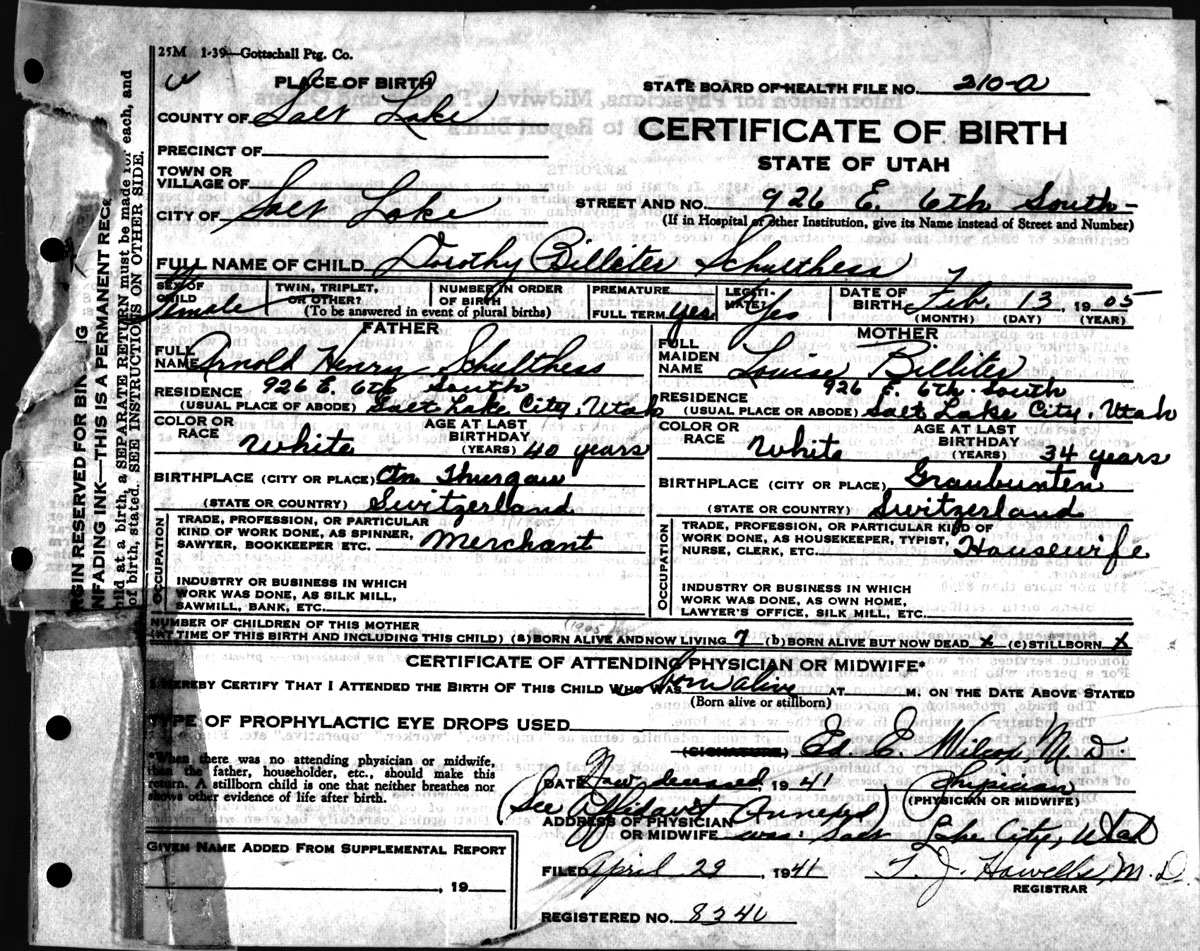 25M 1-39—Gottschall Ptg. Co.
PLACE OF BIRTH
STATE BOARD OF HEALTH FILE NO. 210-A
COUNTY OF Salt Lake
CERTIFICATE OF BIRTH
PRECINCT OF
STATE OF UTAH
TOWN OR
VILLAGE OF
CITY OF Salt Lake
STREET AND NO. 926 E. 6th South
(If in Hospital or other Institution, give its Name instead of Street and Number)
FULL NAME OF CHILD Dorothy Billeter Schulthess
SEX OF CHILD Female
TWIN, TRIPLET, OR OTHER?
NUMBER IN ORDER OF BIRTH
(To be answered in event of plural births)
PREMATURE
FULL TERM Yes
LEGITI-
MATE? Yes
DATE OF BIRTH Feb. 13 1905
(MONTH) (DAY) (YEAR)
FATHER
FULL NAME Arnold Henry Schulthess
RESIDENCE 926 E. 6th South
(USUAL PLACE OF ABODE) Salt Lake City, Utah
COLOR OR RACE White
AGE AT LAST BIRTHDAY (YEARS) 40 years
BIRTHPLACE (CITY OR PLACE) Ctn Thurgau
(STATE OR COUNTRY) Switzerland
OCCUPATION
TRADE, PROFESSION, OR PARTICULAR
KIND OF WORK DONE, AS SPINNER,
SAWYER, BOOKKEEPER ETC. Merchant
INDUSTRY OR BUSINESS IN WHICH
WORK WAS DONE, AS SILK MILL,
SAWMILL, BANK, ETC.
MOTHER
FULL MAIDEN NAME Louise Billiter
RESIDENCE 926 E 6th South
(USUAL PLACE OR ABODE) Salt Lake City, Utah
COLOR OR RACE White
AGE AT LAST BIRTHDAY (YEARS) 34 years
BIRTHPLACE (CITY OR PLACE) Graubunten
(STATE OR COUNTRY) Switzerland
OCCUPATION
TRADE, PROFESSION, OR PARTICULAR KIND OF
WORK DONE, AS HOUSEKEEPER, TYPIST,
NURSE, CLERK, ETC. Housewife
INDUSTRY OR BUSINESS IN WHICH
WORK WAS DONE, AS OWN HOME,
LAWYER'S OFFICE, SILK MILL, ETC.
NUMBER OF CHILDREN OF THIS MOTHER
(AT TIME OF THIS BIRTH AND INCLUDING THIS CHILD) (a) BORN ALIVE AND NOW LIVING 7 (b) BORN ALIVE BUT NOW DEAD x (c) STILLBORN x
CERTIFICATE OF ATTENDING PHYSICIAN OR MIDWIFE*
I HEREBY CERTIFY THAT I ATTENDED THE BIRTH OF THIS CHILD WHO WAS born alive AT M. ON THE DATE ABOVE STATED
(Born alive or stillborn)
TYPE OF PROPHYLACTIC EYE DROPS USED
(SIGNATURE) Ed. E. Wilcox, M.D.
*When there was no attending physician or midwife,
then the father, householder, etc., should make this
return. A stillborn child is one that neither breathes nor
shows other evidence of life after birth.
DATE Now deceased, 1941
Physician
(PHYSICIAN OR MIDWIFE)
(See Affidavit Annexed)
ADDRESS OF PHYSICIAN
OR MIDWIFE was: Salt Lake City, Utah
GIVEN NAME ADDED FROM SUPPLEMENTAL REPORT
, 19
FILED April 29, 1941 T. J. Howells, M.D.
REGISTRAR
REGISTERED NO. 8240
RGIN RESERVED FOR BIN IG
NFADING INK—THIS IS A PERMANENT REC
hild at a birth, a SEPARATE RETURN must be made for each, and
of birth, stated. SEE INSTRUCTIONS ON OTHER SIDE.